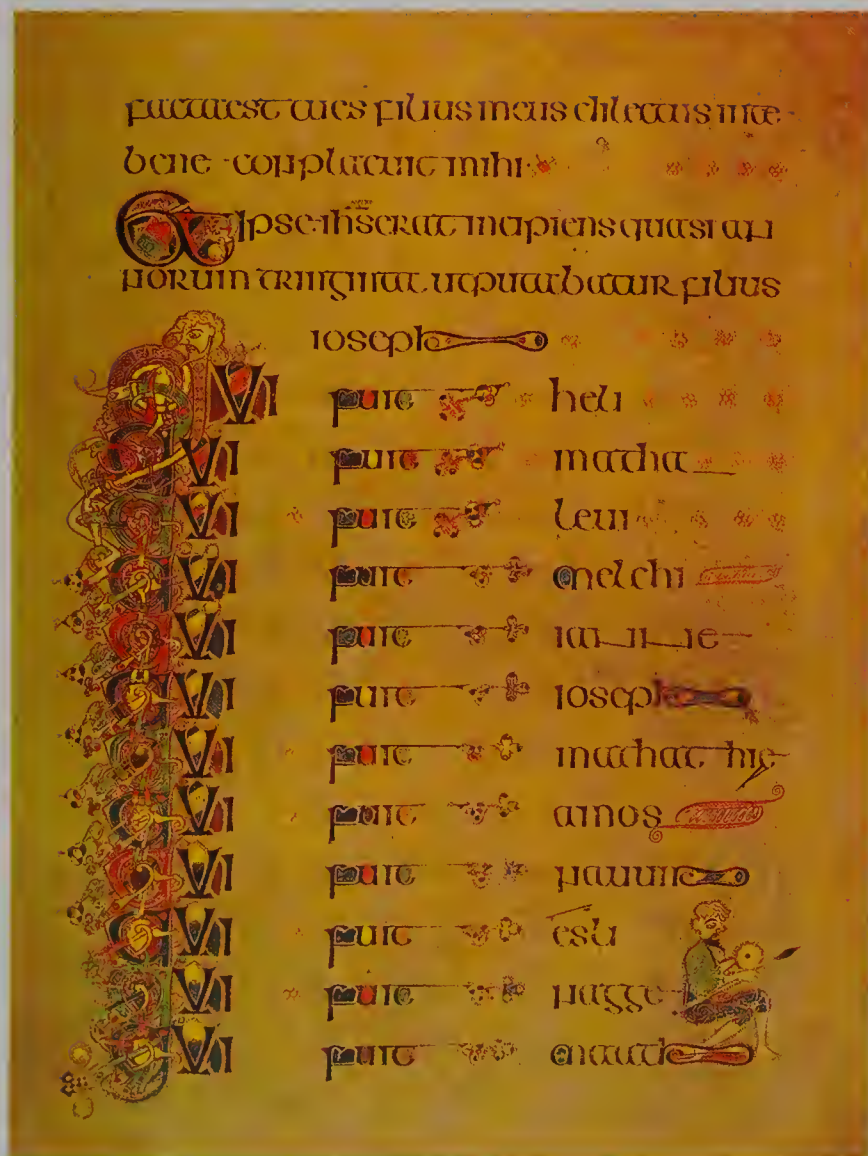 factaest tues filius meus dilectus inte
bene conplacuit mihi
Et ipse ihs erat incipiens quasi an
norum tringinta ut putabatur filius
ioseph
QUI fuit heli
QUI fuit matha
QUI fuit leui
QUI fuit melchi
QUI fuit ianne
QUI fuit ioseph
QUI fuit mathathie
QUI fuit amos
QUI fuit nauum
QUI fuit esli
QUI fuit nagge
QUI fuit maath